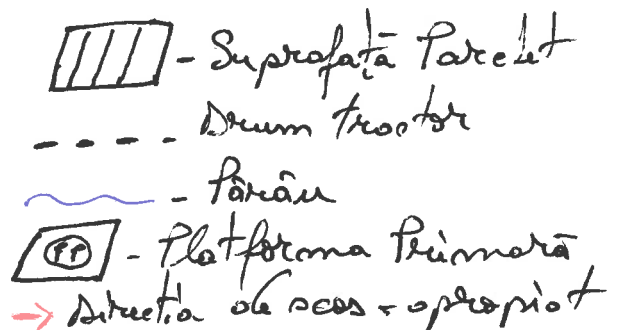 - Suprafață Parchet
- Drum tractor
- Pârâu
PP - Platforma Primară
Directia de scos - apropiat